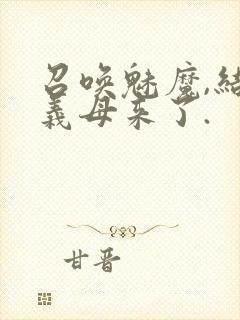 召唤魅魔,结
義母来了.
甘晋